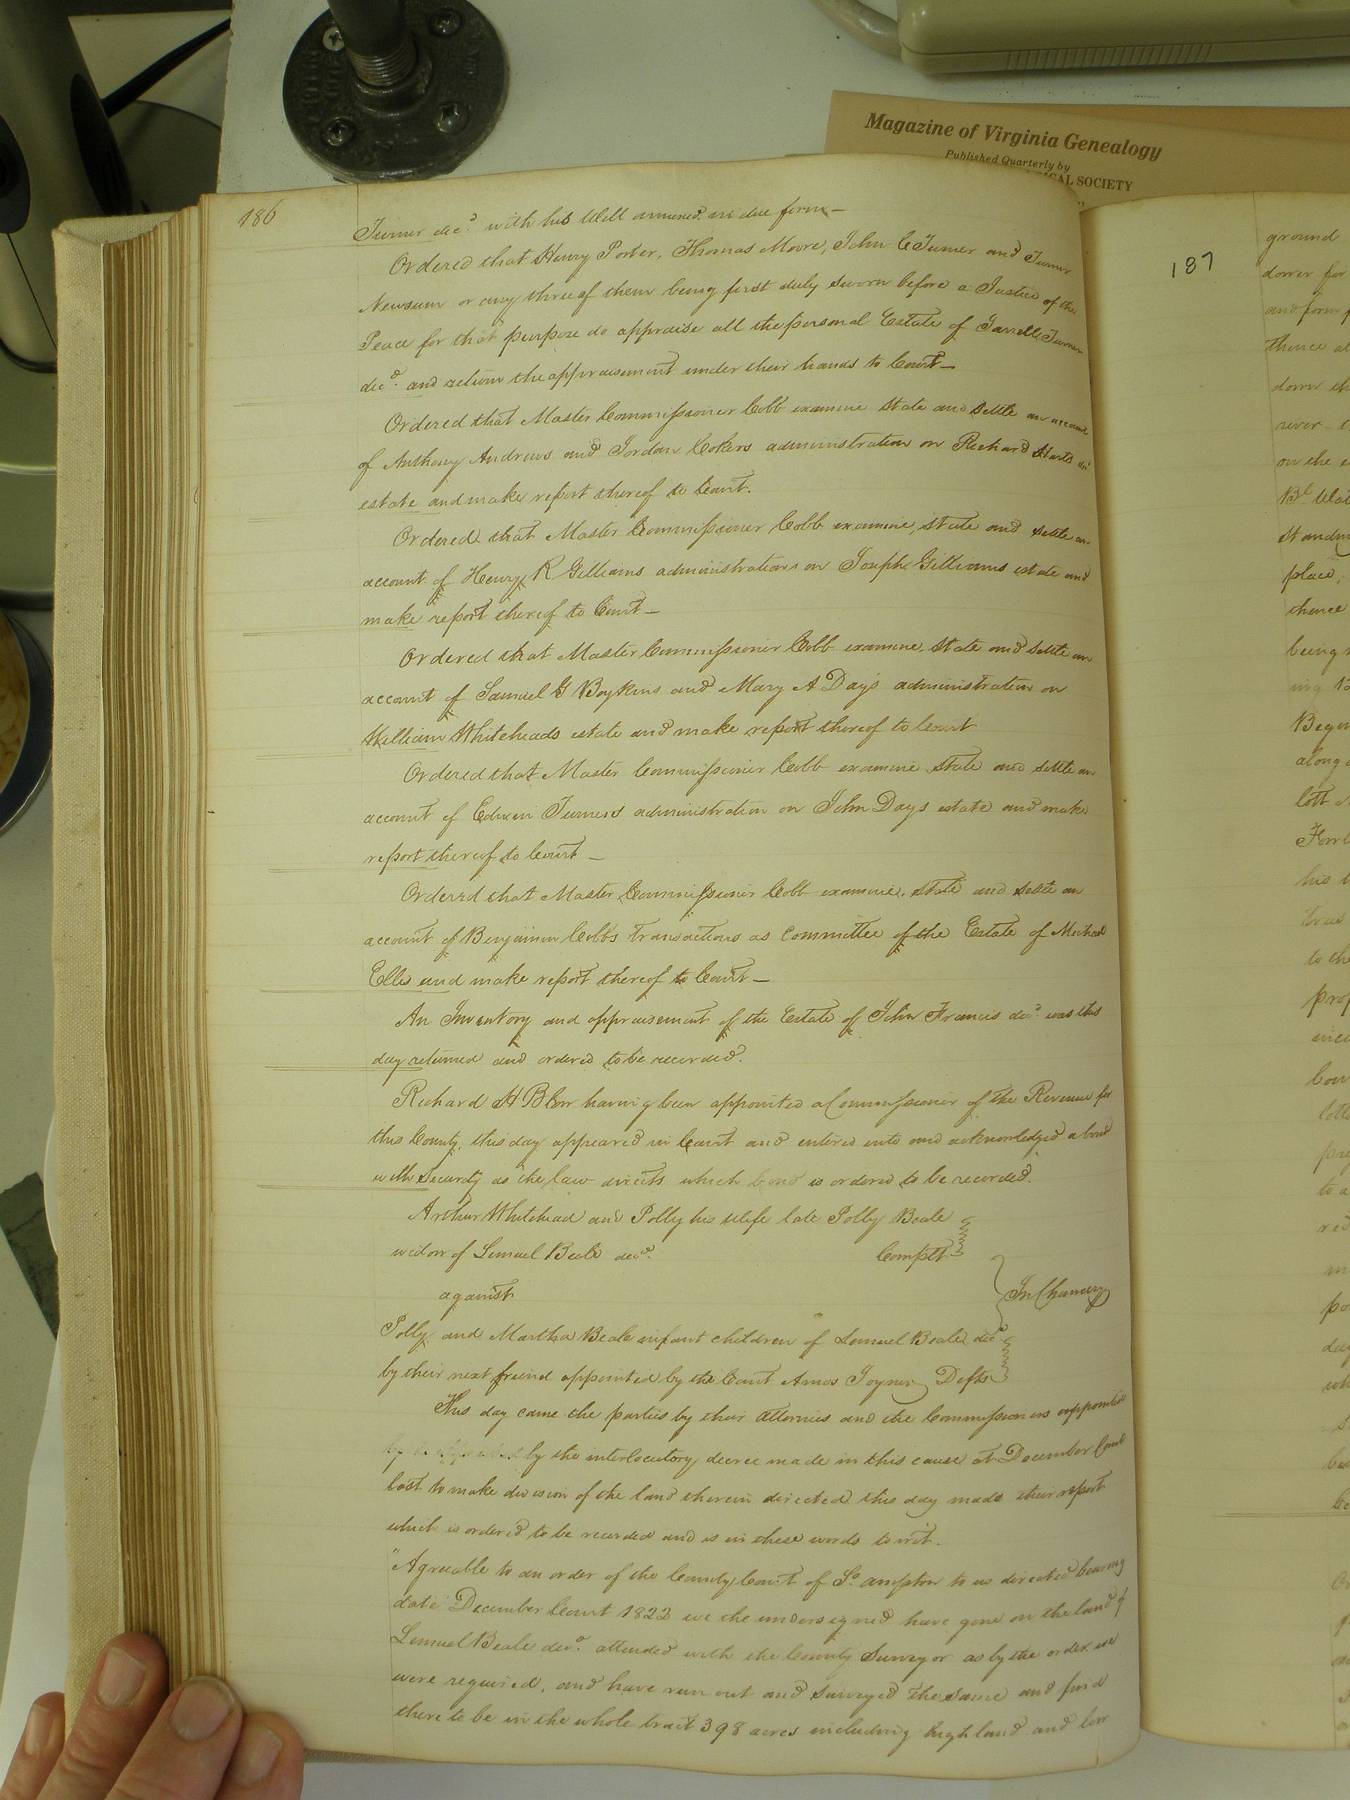 Magazine of Virginia Genealogy
Published Quarterly by
SOCIETY
186
Turner decd. with his Will annexed in due form—
Ordered that Henry Porter, Thomas Moore, John C Turner and Turner
Newsum or any three of them being first duly sworn before a Justice of the
Peace for that purpose do appraise all the personal Estate of Turner
decd. and return the appraisement under their hands to Court—
Ordered that Master Commissioner Cobb examine State and Settle an account
of Anthony Andrews and Jordan Cokers administration on Richard
estate and make report thereof to Court.
Ordered that Master Commissioner Cobb examine, state and settle an
account of Henry R Gilliams administration on Joseph Gilliams estate and
make report thereof to Court—
Ordered that Master Commissioner Cobb examine State and settle an
account of Samuel G Boykins and Mary A Day's administration on
William Whiteheads estate and make report thereof to Court
Ordered that Master Commissioner Cobb examine State and settle an
account of Edwin Turners administration on John Days estate and make
report thereof to Court—
Ordered that Master Commissioner Cobb examine, state and settle an
account of Benjamin Cobbs transactions as Committee of the Estate of Michael
Ellis and make report thereof to Court—
An Inventory and appraisement of the Estate of John Francis decd. was this
day returned and ordered to be recorded.
Richard H Blow having been appointed a Commissioner of the Revenue for
this County, this day appeared in Court and entered into and acknowledged a bond
with Security as the law directs which bond is ordered to be recorded.
Arthur Whitehead and Polly his Wife late Polly Beale
widow of Lemuel Beale decd. Complts
against
In Chancery
Polly and Martha Beale infant children of Lemuel Beale decd
by their next friend appointed by the Court Amos Joyner Defts
This day came the parties by their attornies and the Commissioners appointed
by the interlocutory decree made in this cause at December Court
last to make division of the land therein directed this day made their report
which is ordered to be recorded and is in these words to wit.
"Agreeable to an order of the County Court of So. ampton to us directed bearing
date December Court 1822 we the undersigned have gone on the land of
Lemuel Beale decd. attended with the County Surveyor as by the order we
were required, and have run out and surveyed the same and find
there to be in the whole tract 398 acres including high land and low
187
ground
dower for
and form
thence
down
river
on the
place,
thence
being
along
lott
his